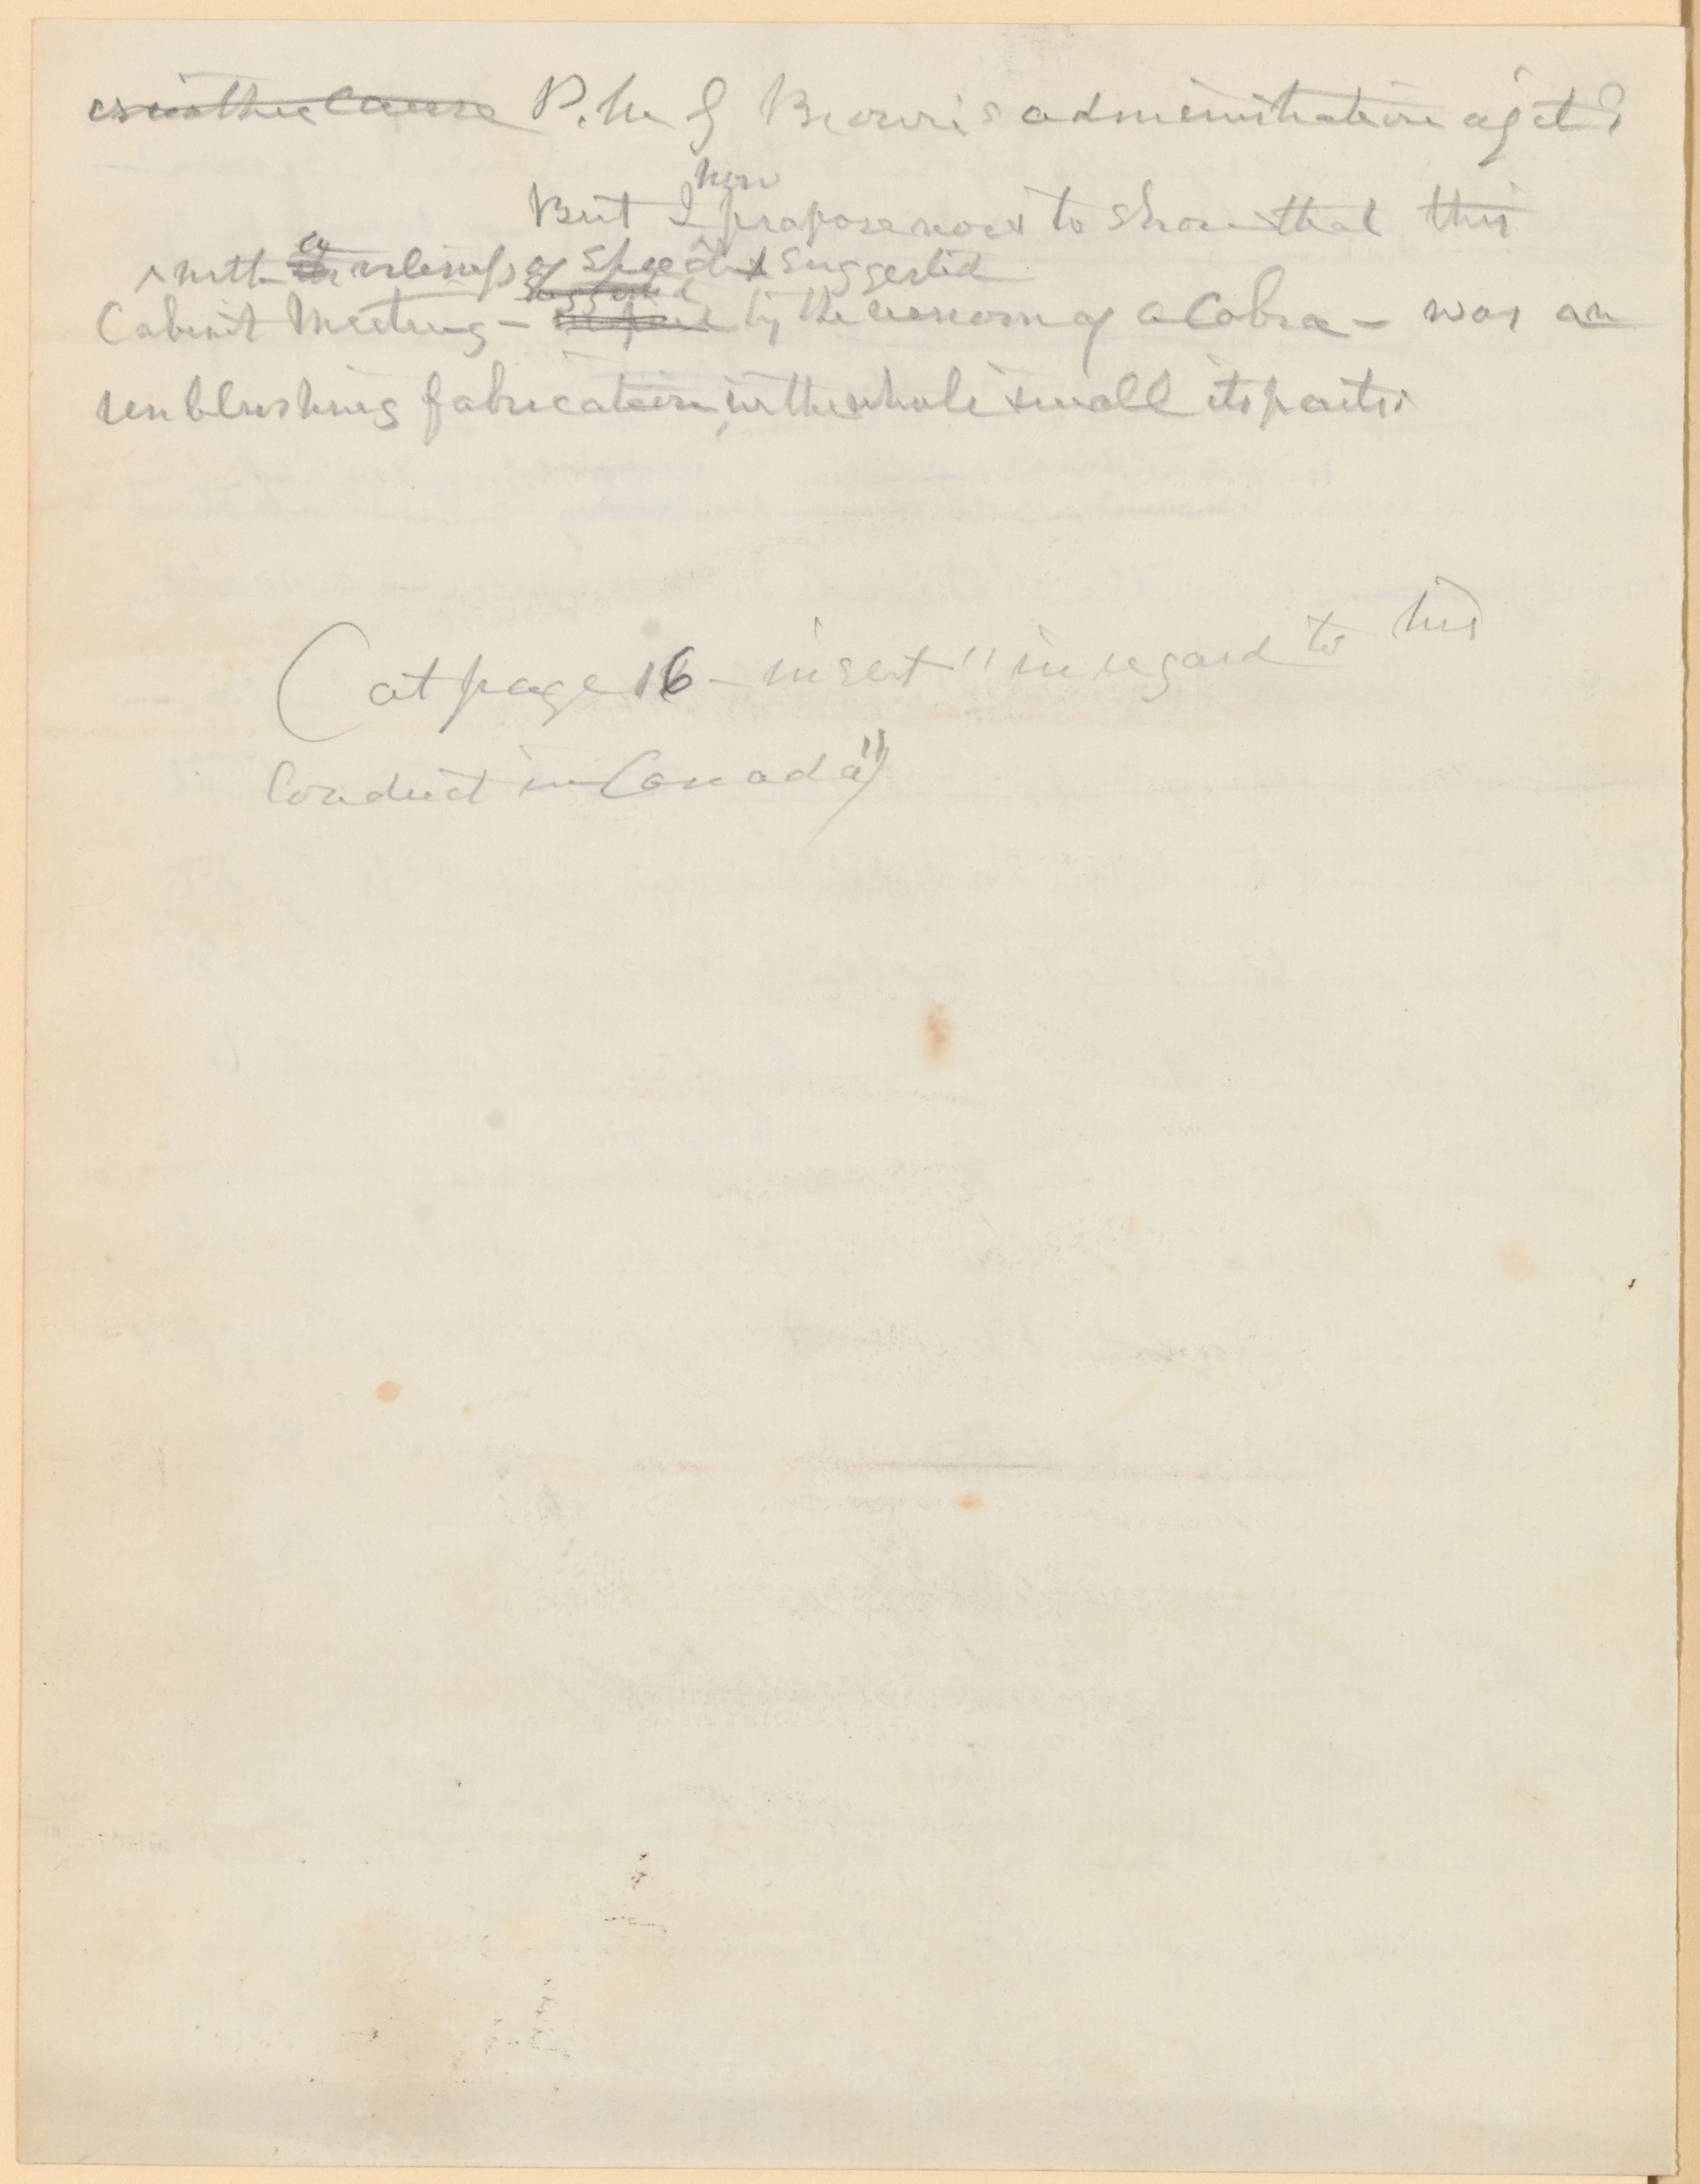 P.M.G Brown's administration of it?
now
But I propose now to show that this
with a violence of speech & suggested
Cabinet Meeting – by the venom of a Cobra – was an
unblushing fabrication, in the whole & in all its parts.
(at page 16 – insert "in regard to his
Conduct in Canada")